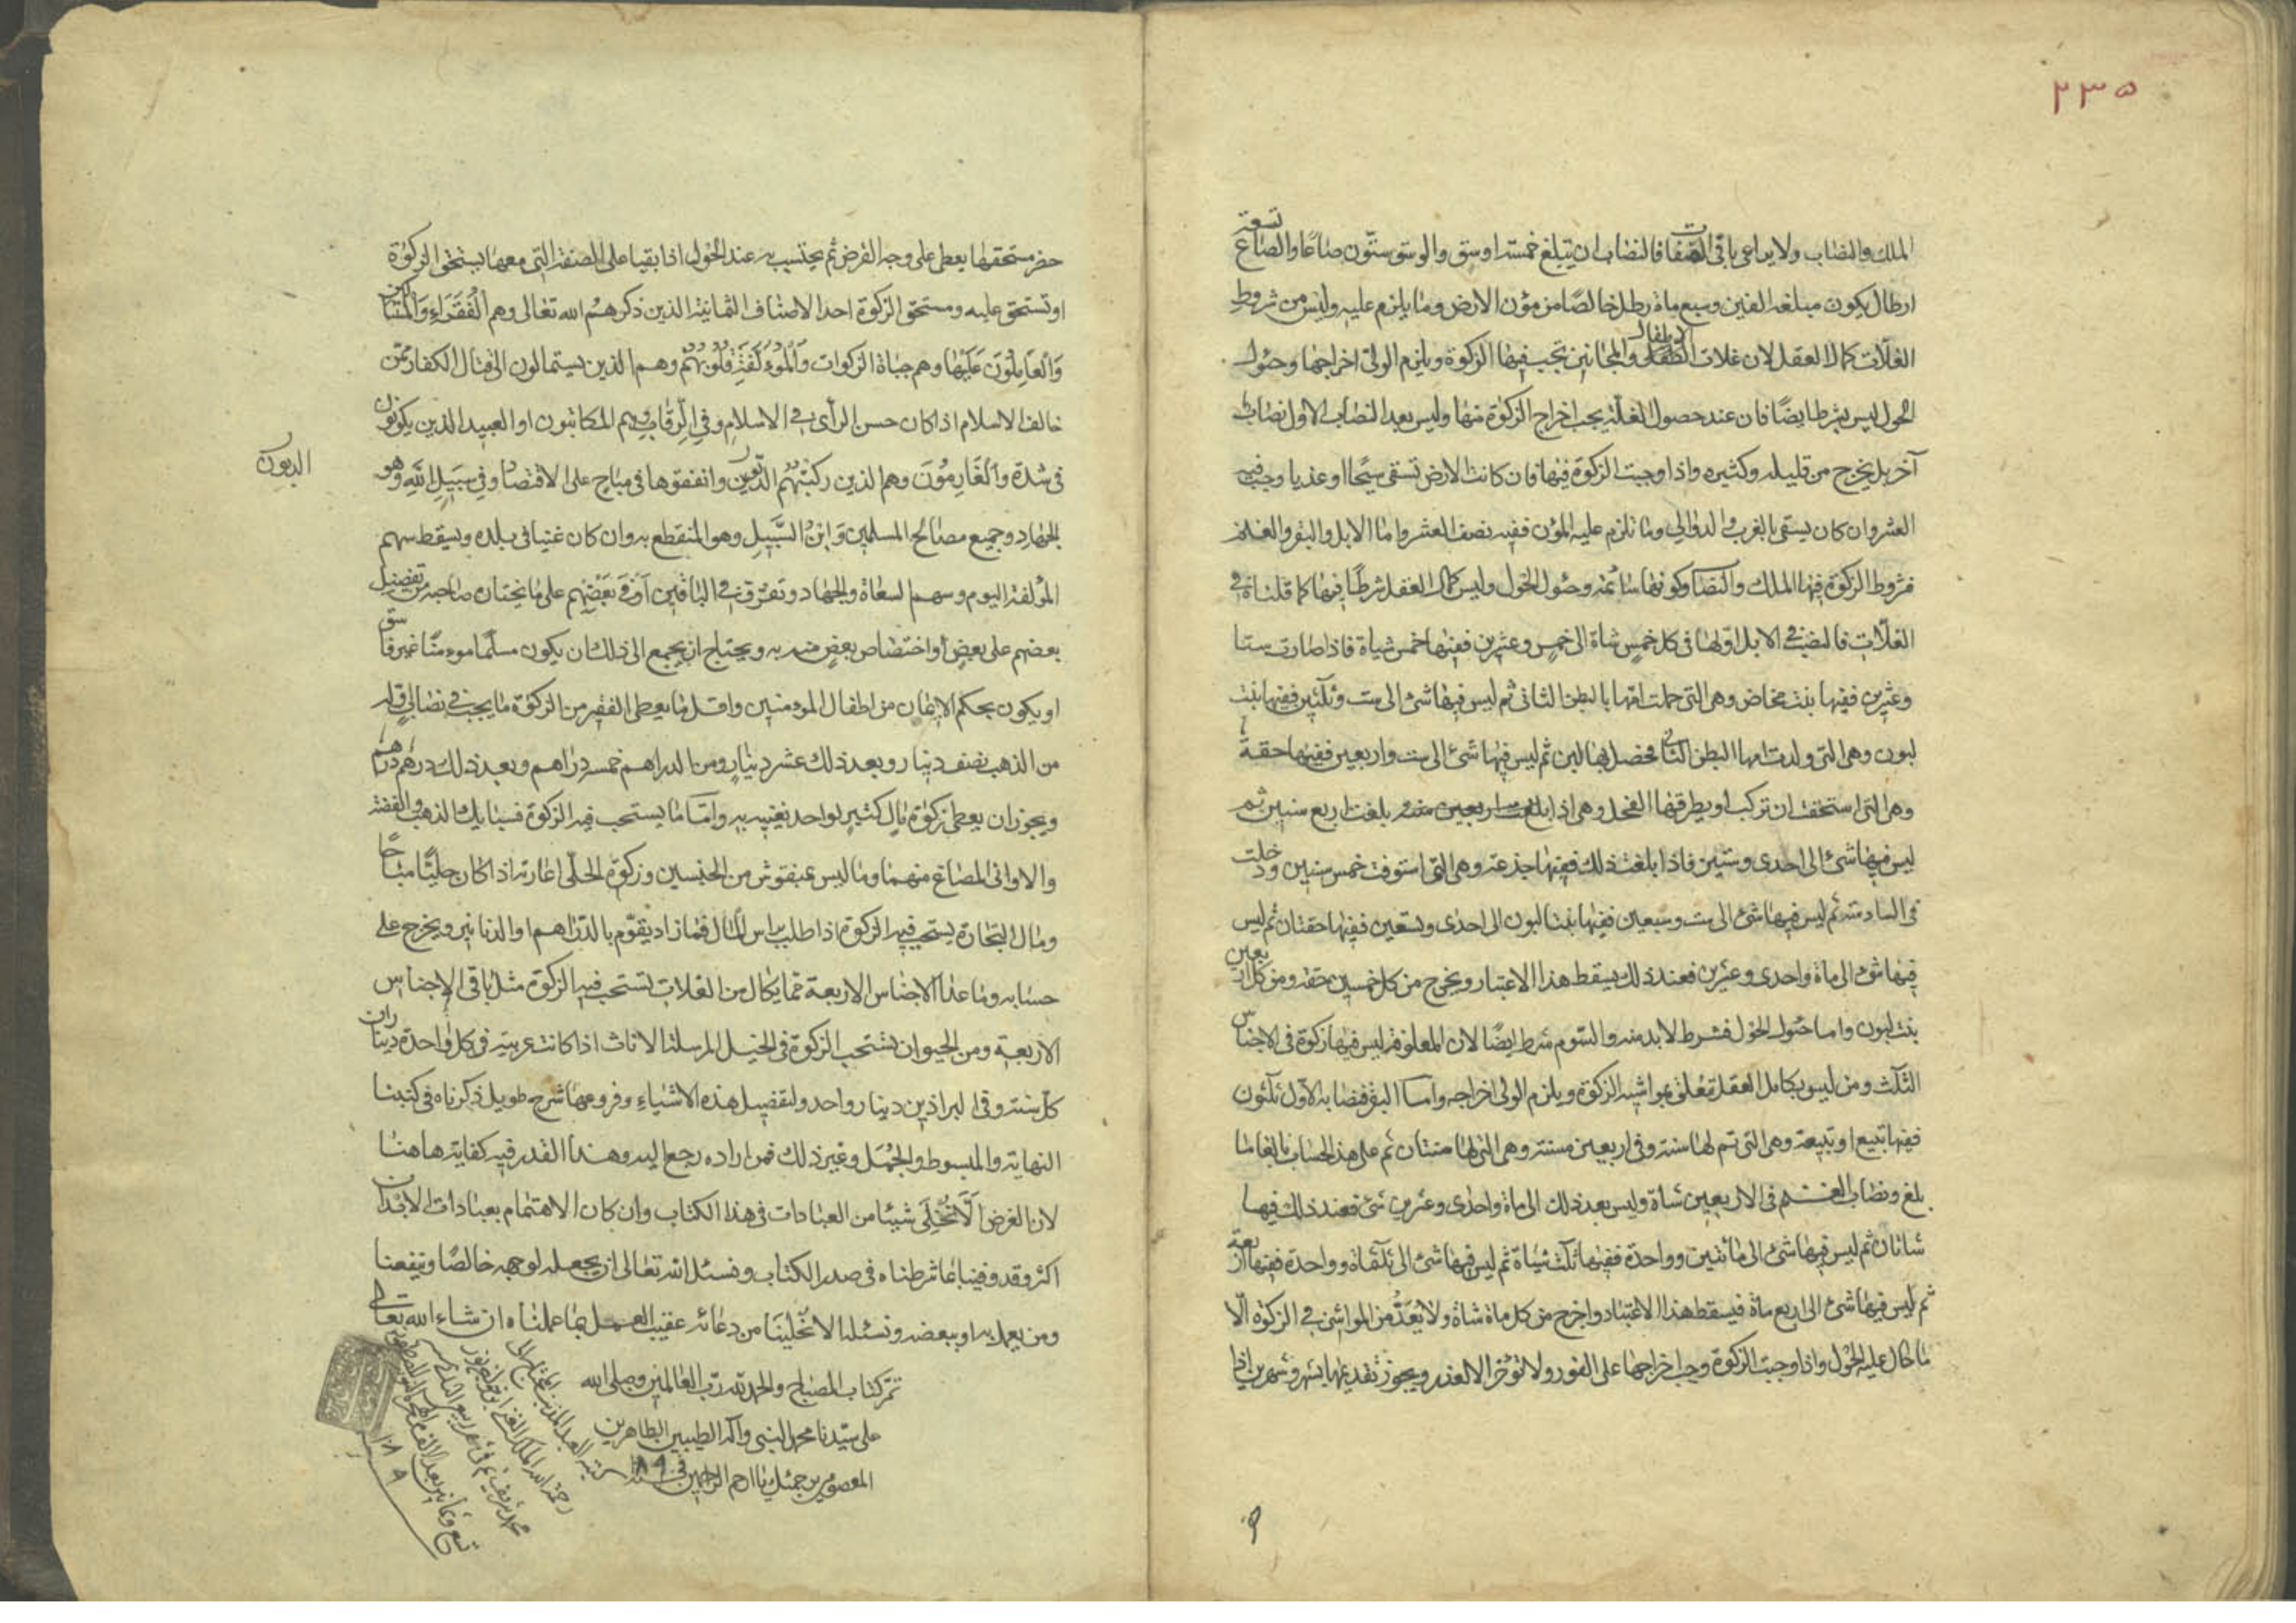 ٢٣٥
الملك والنصاب ولا يراعى باقى الصفات فالنصاب ان يبلغ خمسة اوسق والوسق ستّون صاعًا والصاع تسعة
ارطال يكون مبلغه الفين وسبع مأة رطل خالصًا من مؤن الارض وما يلزم عليه وليس من شروط
الغلّات كمال العقل لان غلات الاطفال والمجانين تجب فيها الزكوة ويلزم الولىّ اخراجها وحئول
الحول ليس بشرط ايضًا فان عند حصول الغلّة يجب اخراج الزكوة منها وليس بعد النصاب الاول نصاب
آخر بل يخرج من قليله وكثيره واذا وجبت الزكوة فيها فان كانت الارض تسقى سيحًا او عذيا وجب فيه
العشر وان كان يسقى بالغرب والدوالى وما تلزم عليه المؤن ففيه نصف العشر واما الابل والبقر والغنم
فشروط الزكوة فيها الملك والنصاب وكونها سائمة وحئول الحول وليس كمال العقل شرطًا فيها كما قلناه فى
الغلّات فالنصب فى الابل اوّلها فى كل خمسٍ شاة الى خمسٍ وعشرين ففيها خمس شياة فاذا صارت ستا
وعشرين ففيها بنت مخاض وهى التى حملت امّها بالبطن الثانى ثم ليس فيها شئ الى ست وثلثين ففيها بنت
لبون وهى التى ولدت امها البطن الثانى فحصل بها لبن ثم ليس فيها شئ الى ست واربعين ففيها حقة
وهى التى استحقت ان تركب او يطرقها الفحل وهى اذا بلغت اربعين منه بلغت اربع سنين ثم
ليس فيها شئ الى احدى وستين فاذا بلغت ذلك ففيها جذعة وهى التى استوفت خمس سنين ودخلت
فى السادسة ثم ليس فيها شئ الى ست وسبعين ففيها بنتا لبون الى احدى وتسعين ففيها حقتان ثم ليس
فيها شئ الى مأة واحدى وعشرين فعند ذلك يسقط هذا الاعتبار ويخرج من كل خمسين حقة ومن كل اربعين
بنت لبون واما حئول الحول فشرط لابد منه والسّوم شرط ايضًا لان المعلوفة ليس فيها زكوة فى الاجناس
الثلث ومن ليس بكامل العقل تعلق بمواشيه الزكوة ويلزم الولى اخراجه واما البقر فنصابه الاول ثلثون
ففيها تبيع او تبيعة وهى التى تم لها سنة وفى اربعين مسنة وهى التى لها سنتان ثم على هذا الحساب بالغا ما
بلغ ونصاب الغنم فى الاربعين شاة وليس بعد ذلك الى مأة واحدى وعشرين شئ فعند ذلك فيها
شاتان ثم ليس فيها شئ الى مائتين وواحدة ففيها ثلث شياة ثم ليس فيها شئ الى ثلثمأة وواحدة ففيها اربعة
ثم ليس فيها شئ الى اربع مأة فيسقط هذا الاعتبار واخرج من كل مأة شاة ولا يُعَدُّ من المواشى فى الزكوة الّا
ما حال عليه الحول واذا وجبت الزكوة وجب اخراجها على الفور ولا تؤخّر الا لعذر ويجوز تقديمها بشهر وشهرين اذا
حضر مستحقها يعطى على وجه القرض ثم يحتسب به عند الحول اذا بقيا على الصفة التى معها يستحق الزكوة
او تستحق عليه ومستحق الزكوة احد الاصناف الثمانية الذين ذكرهم الله تعالى وهم الْفُقَرَاءِ وَالْمَسَاكِينَ
وَالْعَامِلُونَ عَلَيْهَا وهم جباة الزكوات وَالْمُؤَلَّفَةِ قُلُوبُهُمْ وهم الذين يستمالون الى قتال الكفار ممّن
خالف الاسلام اذا كان حسن الرأى فى الاسلام وَفِي الرِّقَابِ وهم المكاتبون او العبيد الذين يكونون
فى شدة وَالْغَارِمُونَ وهم الذين ركبتهم الدّيون وانفقوها فى مباح على الاقتصاد وَفِي سَبِيلِ اللَّهِ وهو
الديون
الجهاد وجميع مصالح المسلمين وَابْنُ السَّبِيلِ وهو المنقطع به وان كان غنيا فى بلده ويسقط سهم
المؤلفة اليوم وسهم السعاة والجهاد وتفرّق فى الباقين اَوْ فى بَعْضِهِم على ما يختاره صاحبه من تفضيل
بعضهم على بعض او اختصاص بعضٍ منهم به ويحتاج ان يجمع الى ذلك ان يكون مسلمًا مومنًا غير فاسق
او يكون بحكم الايمان من اطفال المومنين واقل ما يعطى الفقير من الزكوة ما يجب فى نصابٍ اوّل
من الذهب نصف دينار وبعد ذلك عشر دينارٍ ومن الدراهم خمسة دراهم وبعد ذلك درهم درهم
ويجوز ان يعطى زكوة مالٍ كثيرٍ لواحد يغنيه به وامّا ما يستحب فيه الزكوة فسبايك الذهب والفضة
والاوانى المصاغ منهما وما ليس بمنقوش من الجنسين وزكوة الحلىّ اعارته اذا كان حليًّا مباحًا
ومال التجارة يستحب فيه الزكوة اذا طلب براس المال فما زاد يقوّم بالدّراهم او الدنانير ويخرج على
حسابه وما عدا الاجناس الاربعة ممّا يكال من الغلات تستحب فيه الزكوة مثل باقى الاجناس
الاربعة ومن الحيوان يستحب الزكوة فى الخيل المرسلة الاناث اذا كانت عربية فى كل واحدة ديناران
كلّ سنة وفى البراذين دينار واحد ولتفصيل هذه الاشياء وفروعها شرح طويل ذكرناه فى كتبنا
النهاية والمبسوط والجُمَل وغير ذلك فمن اراده رجع اليه وهذا القدر فيه كفاية هاهنا
لان الغرض اَلَّا نُخْلِىَ شيئا من العبادات فى هذا الكتاب وان كان الاهتمام بعبادات الابدان
اكثر وقد وفينا بما شرطناه فى صدر الكتاب ونسئل الله تعالى ان يجعله لوجهه خالصًا وينفعنا
ومن يعمل به او ببعضه ونسئله الا تخلّينَا من دعائه عقيب العمل بما عملناه ان شاء الله تعالى
تمّ كتاب المصباح والحمد لله ربّ العالمين وصلى الله
على سيّدنا محمد النبى وآله الطيبين الطاهرين
المعصومين برحمتك يا ارحم الراحمين فى سنة ١٠٨٩
كتبه العبد المذنب
رحمة الله الملك الغنى
محمد شريف فى شهر ربيع
تسع وثمانين بعد الالف
١٠٨٩